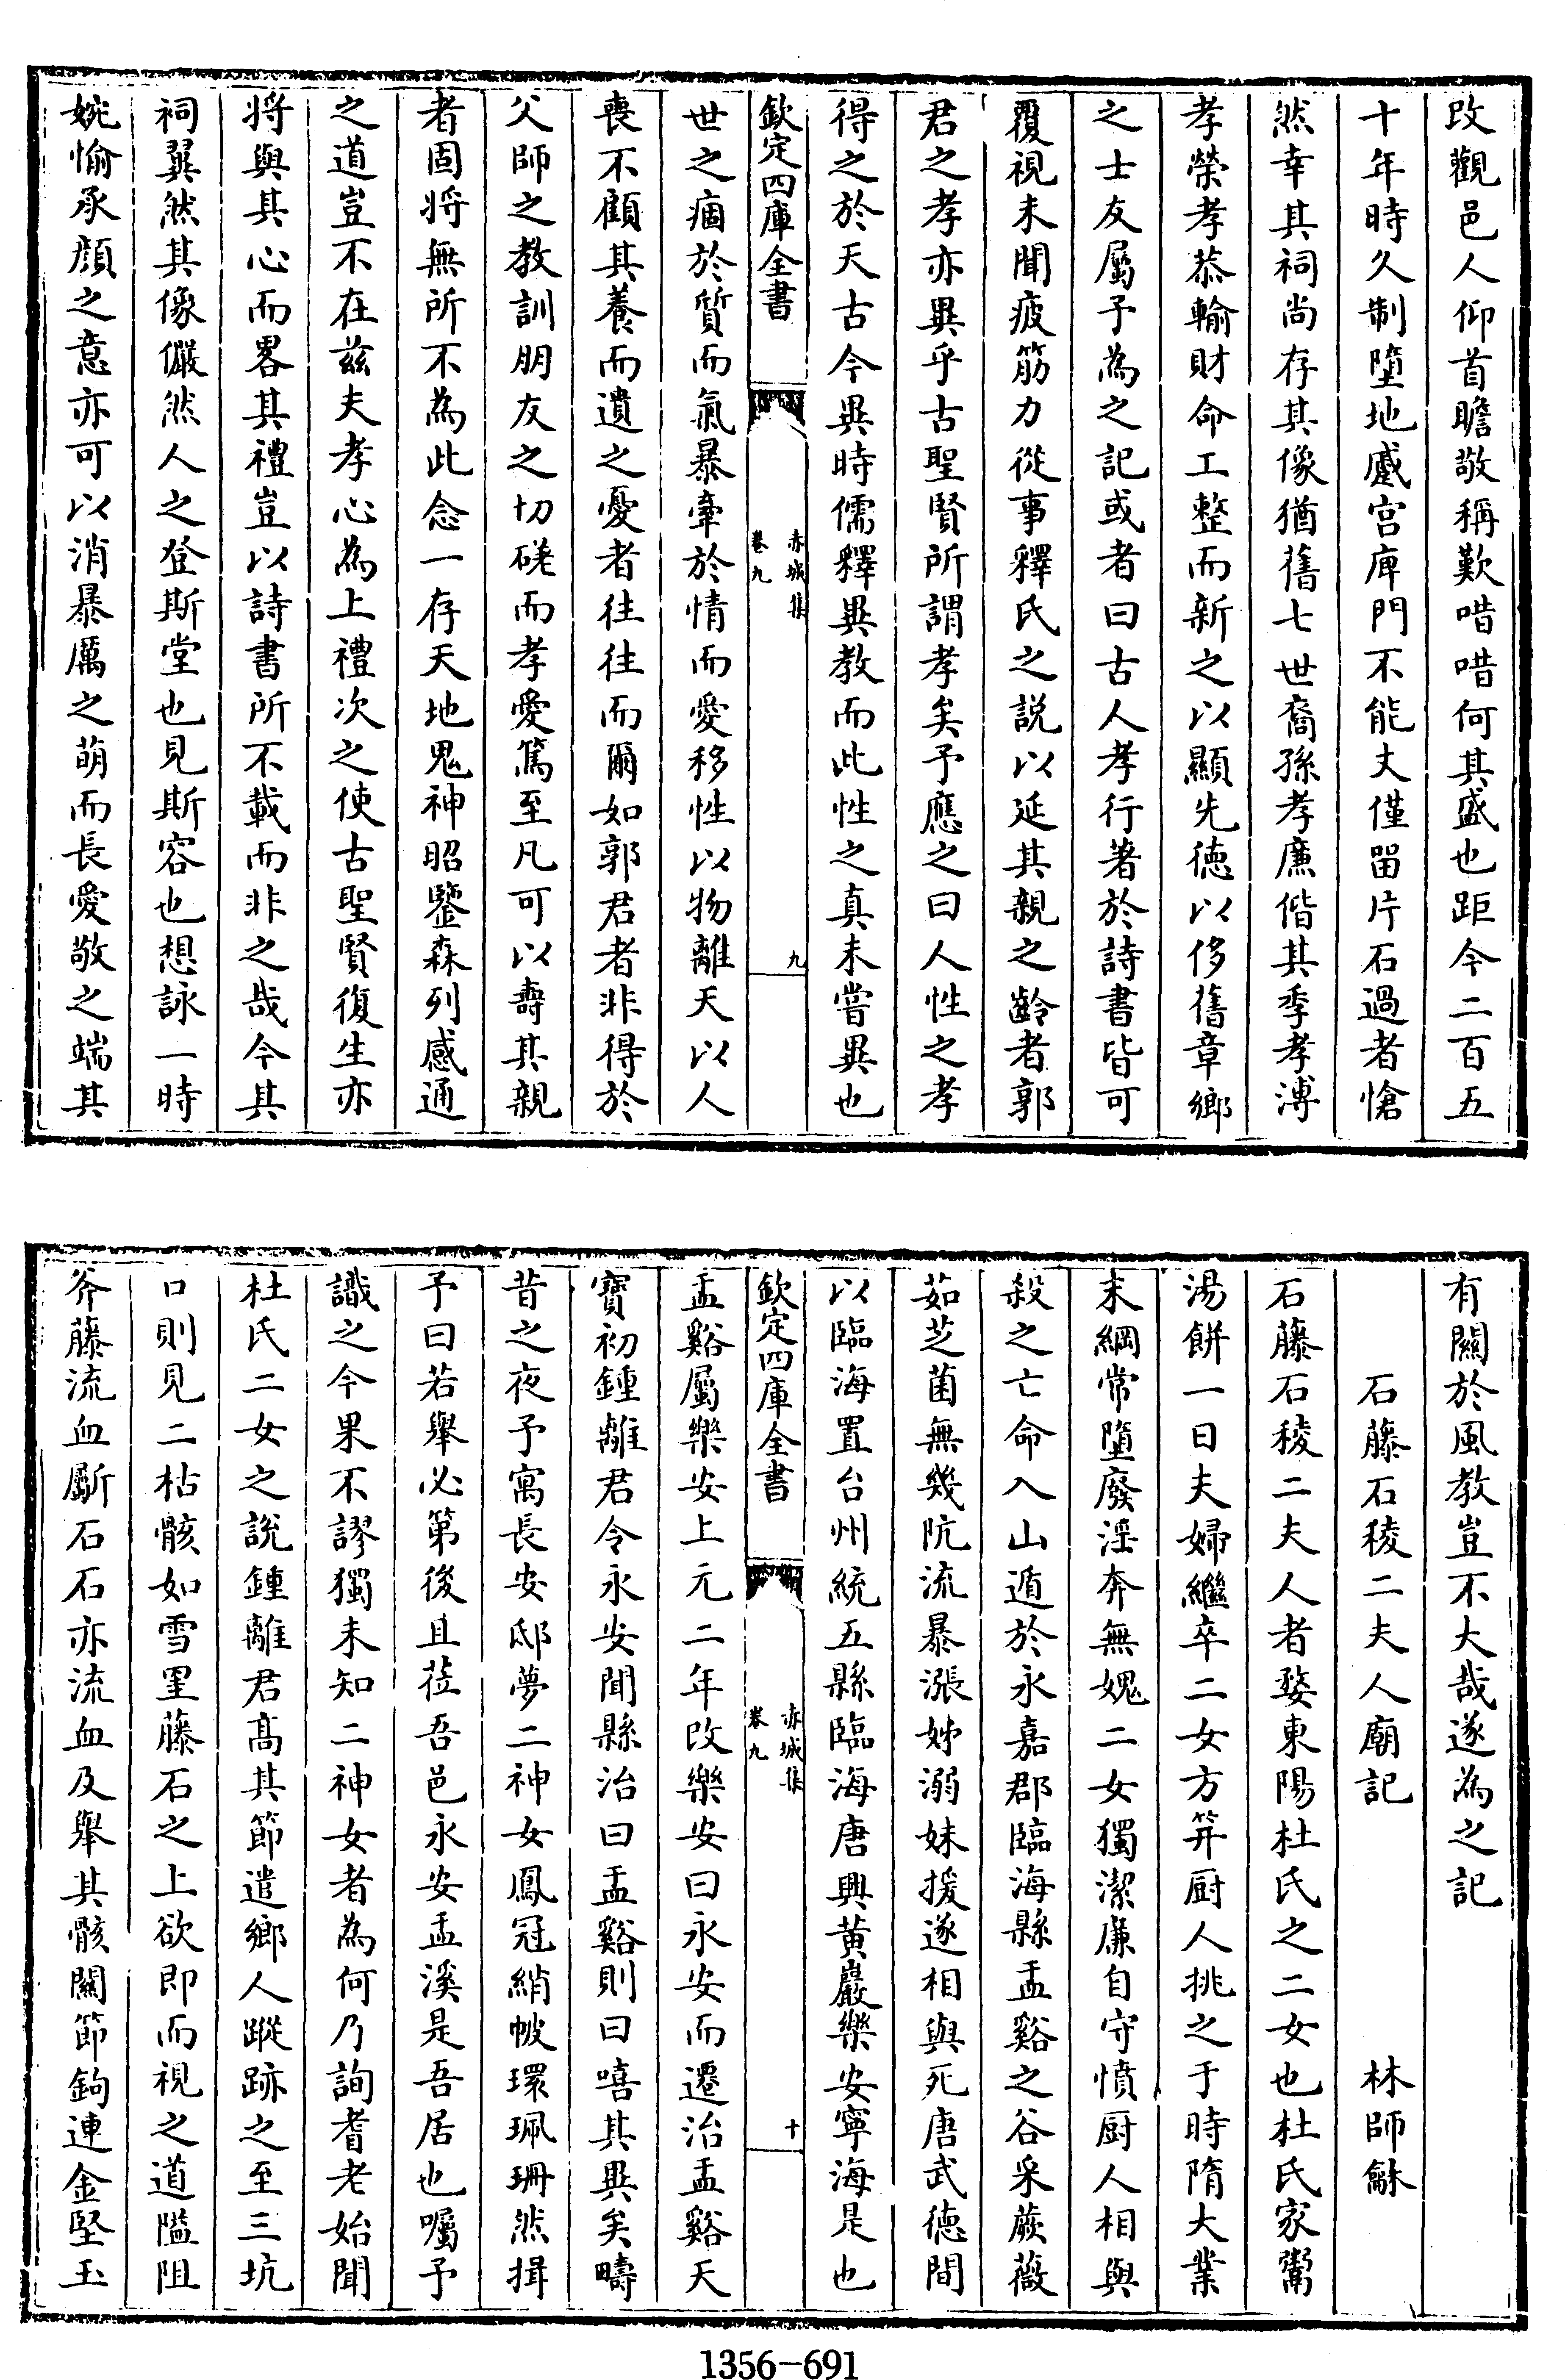 改觀邑人仰首瞻敬稱歎唶唶何其盛也距今二百五
十年時久制墮地蹙宫庳門不能丈僅畱片石過者愴
然幸其祠尚存其像猶舊七世裔孫孝廉偕其季孝溥
孝榮孝恭輸財命工整而新之以顯先徳以侈舊章鄉
之士友屬予為之記或者曰古人孝行著於詩書皆可
覆視未聞疲筋力從事釋氏之説以延其親之齡者郭
君之孝亦異乎古聖賢所謂孝矣予應之曰人性之孝
得之於天古今異時儒釋異教而此性之真未嘗異也
欽定四庫全書
赤城集
卷九
九
世之痼於質而氣暴牽於情而愛移性以物離天以人
喪不顧其養而遺之憂者往往而爾如郭君者非得於
父師之教訓朋友之切磋而孝愛篤至凡可以壽其親
者固将無所不為此念一存天地鬼神昭鑒森列感通
之道豈不在兹夫孝心為上禮次之使古聖賢復生亦
将與其心而畧其禮豈以詩書所不載而非之哉今其
祠翼然其像儼然人之登斯堂也見斯容也想詠一時
婉愉承顔之意亦可以消暴厲之萌而長愛敬之端其
有關於風教豈不大哉遂為之記
石藤石稜二夫人廟記
林師龢
石藤石稜二夫人者婺東陽杜氏之二女也杜氏家鬻
湯餅一日夫婦繼卒二女方笄厨人挑之于時隋大業
末綱常墮廢淫奔無媿二女獨潔亷自守憤厨人相與
殺之亡命入山遁於永嘉郡臨海縣盂谿之谷采蕨薇
茹芝菌無幾阬流暴漲姊溺妹援遂相與死唐武徳間
以臨海置台州統五縣臨海唐興黄巖樂安寧海是也
欽定四庫全書
赤城集
卷九
十
盂谿屬樂安上元二年改樂安曰永安而遷治盂谿天
寶初鍾離君令永安聞縣治曰盂谿則曰嘻其異矣疇
昔之夜予寓長安邸夢二神女鳳冠綃帔環珮珊然揖
予曰若舉必第後且莅吾邑永安盂溪是吾居也囑予
識之今果不謬獨未知二神女者為何乃詢耆老始聞
杜氏二女之說鍾離君髙其節遣鄉人蹤跡之至三坑
口則見二枯骸如雪罣藤石之上欲即而視之道隘阻
斧藤流血斸石石亦流血及舉其骸關節鉤連金堅玉
1356-691